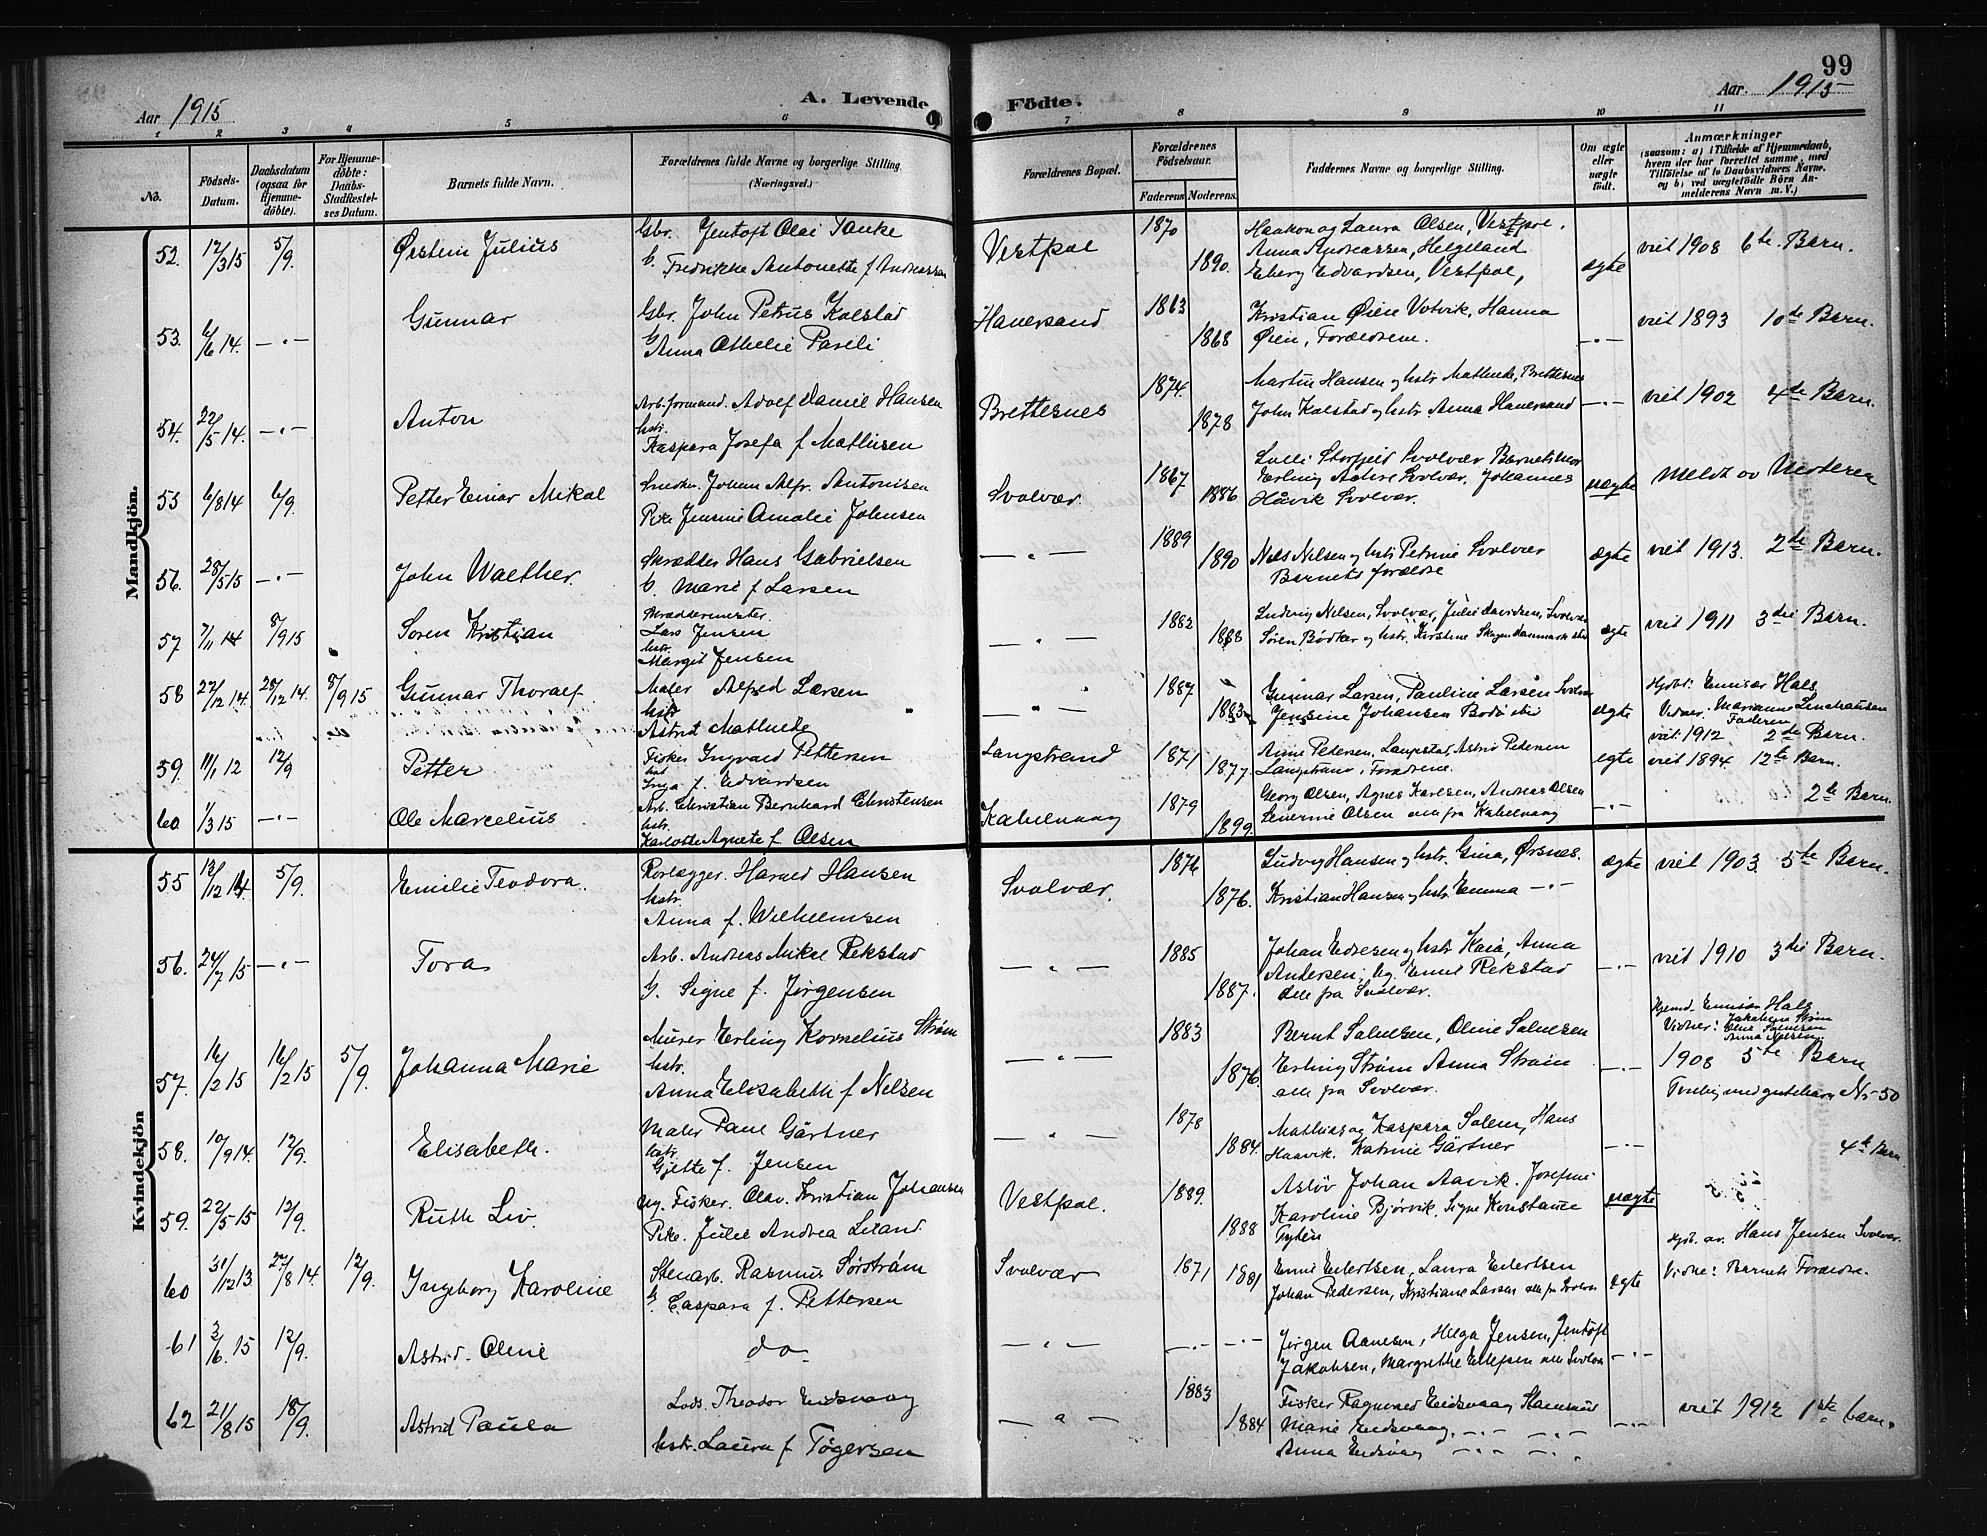 99
Aar 1915
A. Levende Födte.
Aar 1915
1 2 3 4 5 6 7 8 9 10 11
No.
Födsels-Datum.
Daabsdatum (ogsaa for Hjemmedöbte).
For Hjemmedöbte: Daabs-Stadfæstelses Datum.
Barnets fulde Navn.
Forældrenes fulde Navne og borgerlige Stilling. (Næringsvei.)
Forældrenes Bopæl.
Forældrenes Födselsaar.
Faderens Moderens
Faddernes Navne og borgerlige Stilling.
Om ægte eller uægte födt.
Anmærkninger
(saasom: a) i Tilfælde af Hjemmedaab, hvem der har forrettet samme, med Tilföielse af to Daabsvidners Navne, og b) ved uægtefödte Börn Anmelderens Navn m. V.)
Mandkjön.
52. 12/3 15 5/9. Østein Julius Gbr. Jentoft Olai Tanke Vestpol 1870 Haakon og Laura Olsen, Vestpol.
G. Fredrikke Antonette f. Andreassen 1890. Anna Andreassen, Helgeland ægte viet 1908 6te Barn.
Eberg Edvardsen, Vestpol,
53. 6/6 14. —"— Gunnar Gbr. John Petrus Kolstad Hanersand 1863 Kristian Øien Votvik, Hanna viet 1893 10de Barn.
G. Anna Othelie Paseli 1868 Øien, Forældrene. —"—
54. 22/5 14. —"— Anton Arb.formand. Adolf Daniel Hansen Brettesnes 1874. Martin Hansen og hstr Mathilde, Brettesnes viet 1902 4de Barn.
hstr. Kaspara Josefa f. Mathisen 1878 John Kolstad og hstr Anna Hanersand —"—
55 6/8 14 6/9. Petter Einar Mikal Smedm. Johan Alfr. Antonisen Svolvær. 1867 Svolvær Barnets mor
Pike Jensine Amalie Johnsen 1886 Erling Svolvær, Johannes Håvik Svolvær. uægte Meldt av Moderen
56. 28/5 15 —"— John Walther Skrædder Hans Gabrielsen —"— 1889 Nils Nilsen og hstr Petrine Svolvær ægte viet 1913. 2de Barn.
G. Marie f. Larsen 1890 Barnets forældre
57 7/11 14 8/9 15 Søren Kristian Skræddermester Lars Jensen —"— 1882 Ludvig Nilsen, Svolvær, Julie Davidsen, Svolvær
hstr. Margit Jensen 1888 Søren Bödker og hstr. Kirstine Skagen Danmark ægte viet 1911 3die Barn.
58 22/12 14. 28/12 14. 8/9 15 Gunnar Thoralf Maler Alfred Larsen —"— 1887 Gunnar Larsen, Pauline Larsen Svolvær Hjdbt: Emissær Hals
hstr Astrid Mathilde 1883 Jensine Johansen Bodø ægte Vidner. Marianne
Faderen
viet 1912 2de Barn.
59. 11/1 12 12/9 Petter Fisker Ingvald Pettersen Langstrand 1871 Anne Pedersen, Langstrand, Astrid Pedersen
hst Inga f. Edvardsen 1877. Langstrand, Forældrene. ægte viet 1894. 12te Barn.
60 1/3 15 —"— Ole Marcelius Arb. Christian Bernhard Christensen Kabelvaag 1879 Georg Olsen, Agnes Karlsen, Andreas Olsen 2de Barn.
hstr. Karlotte Agnete f. Olsen 1899 Severine Olsen alle fra Kabelvaag —"—
Kvindekjön
55 13/12 14 5/9. Emilie Teodora. Rørlægger. Harald Hansen Svolvær. 1876 Ludvig Hansen og hstr. Gina, Ørsnes. ægte viet 1903. 5te Barn.
hstr. Anna f. Wilhelmsen 1876. Kristian Hansen og hstr. Emma —"—
56. 24/7 15 —"— Tora Arb. Andreas Mikal Rekstad —"— 1885 Johan og hstr Kaia, Anna viet 1910 3die Barn.
G. Signe f. Jørgensen 1887. Andersen, Ug. Emil Rekstad —"—
alle fra Svolvær.
57. 16/2 15 16/2 15 5/9. Johanna Marie Murer Erling Kornelius Strøm —"— 1883 Bernt Salvesen, Oline Salvesen Hjemd. Emissær Hals
hstr. Anna Elisabeth f. Nilsen 1876. Erling Strøm Anna Strøm —"— Vidner: Jakobine Strøm
alle fra Svolvær. Oline Salvesen
Anna Nilsen.
1908 5te Barn
Tvilling med guttebarn Nr 50
58. 10/9 14. 12/9. Elisabeth. Maler Paul Gärtner —"— 1878 Mathias og Kaspara Solem, Hans
hstr. Gjette f. Jensen 1884. Haavik. Katrine Gärtner —"— 4de Barn.
59. 22/5 15 12/9. Ruth Liv. Ug. Fisker. Olav. Kristian Johansen Vestpol. 1889. Aslöv Johan Aavik. Josefine uægte
Pike. Julie Andrea Leland 1888 Karoline Bjørvik. Signe Konstance
60 31/12 13 27/8 14. 12/9. Ingeborg Karoline Stenarb. Rasmus Sørstrøm Svolvær 1871 1881 Emil Eilertsen, Laura Eilertsen Hjdb. av. Hans Jensen Svolvær.
G. Caspara f. Pettersen Johan Pedersen, Kristiane Larsen alle fra Svolvær ægte Vidne: Barnets Forældre.
61 3/6. 15 12/9. Astrid. Oline do —"— —"— —"— Jørgen Aanesen, Helga Jensen, Jentoft
Jakobsen, Margrethe Ellefsen alle Svolvær —"—
62 21/8 15 18/9. Astrid Paula Lods. Theodor Eidsvaag —"— 1883 Fisker Ragnvald Eidsvaag viet 1912 1ste barn.
hstr. Laura f. Tøgersen 1884 Marie Eidsvaag. —"— —"— —"—
Anna Eidsvaag —"— —"—